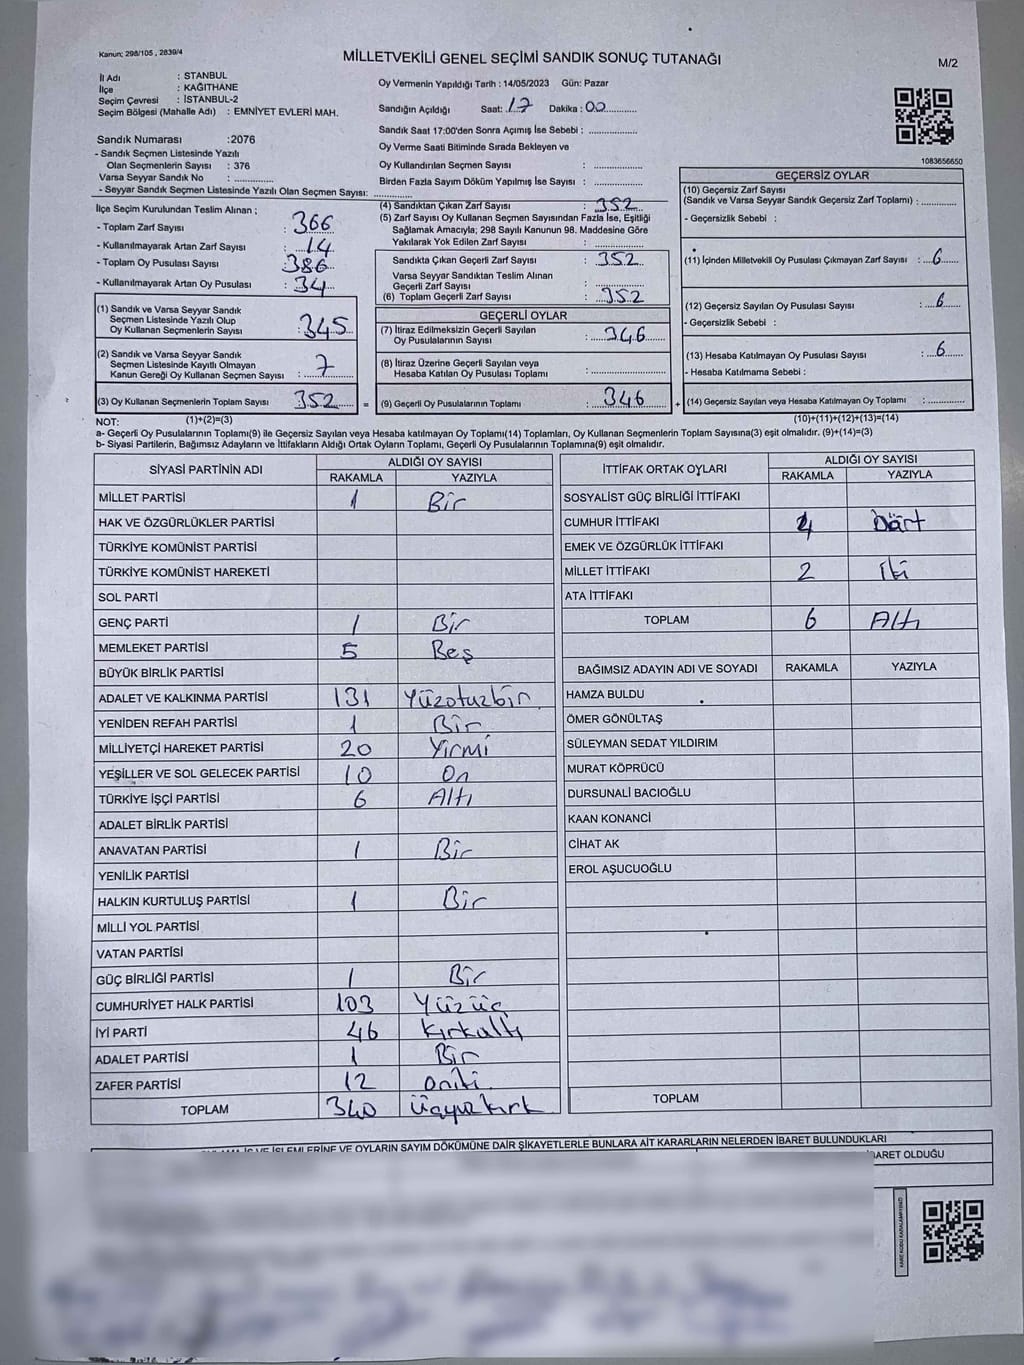 Kanun; 298/105 , 2839/4
MİLLETVEKİLİ GENEL SEÇİMİ SANDIK SONUÇ TUTANAĞI
M/2
İl Adı : STANBUL
İlçe : KAĞITHANE
Seçim Çevresi : İSTANBUL-2
Seçim Bölgesi (Mahalle Adı) : EMNİYET EVLERİ MAH.
Sandık Numarası :2076
- Sandık Seçmen Listesinde Yazılı
Olan Seçmenlerin Sayısı : 376
Varsa Seyyar Sandık No : ..............
- Seyyar Sandık Seçmen Listesinde Yazılı Olan Seçmen Sayısı: ..............
Oy Vermenin Yapıldığı Tarih : 14/05/2023 Gün: Pazar
Sandığın Açıldığı Saat: 17 Dakika : 00
Sandık Saat 17:00'den Sonra Açımış İse Sebebi : ..............
Oy Verme Saati Bitiminde Sırada Bekleyen ve
Oy Kullandırılan Seçmen Sayısı : ..............
Birden Fazla Sayım Döküm Yapılmış İse Sayısı : ..............
1083656650
İlçe Seçim Kurulundan Teslim Alınan ;
- Toplam Zarf Sayısı : 366
- Kullanılmayarak Artan Zarf Sayısı : 14
- Toplam Oy Pusulası Sayısı : 386
- Kullanılmayarak Artan Oy Pusulası : 34
(1) Sandık ve Varsa Seyyar Sandık
Seçmen Listesinde Yazılı Olup
Oy Kullanan Seçmenlerin Sayısı : 345
(2) Sandık ve Varsa Seyyar Sandık
Seçmen Listesinde Kayıtlı Olmayan
Kanun Gereği Oy Kullanan Seçmen Sayısı : 7
(3) Oy Kullanan Seçmenlerin Toplam Sayısı 352 =
(4) Sandıktan Çıkan Zarf Sayısı : 352
(5) Zarf Sayısı Oy Kullanan Seçmen Sayısından Fazla İse, Eşitliği
Sağlamak Amacıyla; 298 Sayılı Kanunun 98. Maddesine Göre
Yakılarak Yok Edilen Zarf Sayısı : ..............
Sandıkta Çıkan Geçerli Zarf Sayısı : 352
Varsa Seyyar Sandıktan Teslim Alınan
Geçerli Zarf Sayısı : ..............
(6) Toplam Geçerli Zarf Sayısı : 352
GEÇERLİ OYLAR
(7) İtiraz Edilmeksizin Geçerli Sayılan
Oy Pusulalarının Sayısı : 346
(8) İtiraz Üzerine Geçerli Sayılan veya
Hesaba Katılan Oy Pusulası Toplamı : ..............
(9) Geçerli Oy Pusulalarının Toplamı : 346 +
GEÇERSİZ OYLAR
(10) Geçersiz Zarf Sayısı
(Sandık ve Varsa Seyyar Sandık Geçersiz Zarf Toplamı) : ..............
- Geçersizlik Sebebi :
(11) İçinden Milletvekili Oy Pusulası Çıkmayan Zarf Sayısı : 6
(12) Geçersiz Sayılan Oy Pusulası Sayısı : 6
- Geçersizlik Sebebi :
(13) Hesaba Katılmayan Oy Pusulası Sayısı : 6
- Hesaba Katılmama Sebebi :
(14) Geçersiz Sayılan veya Hesaba Katılmayan Oy Toplamı : ..............
NOT: (1)+(2)=(3) (10)+(11)+(12)+(13)=(14)
a- Geçerli Oy Pusulalarının Toplamı(9) ile Geçersiz Sayılan veya Hesaba katılmayan Oy Toplamı(14) Toplamları, Oy Kullanan Seçmenlerin Toplam Sayısına(3) eşit olmalıdır. (9)+(14)=(3)
b- Siyasi Partilerin, Bağımsız Adayların ve İttifakların Aldığı Ortak Oyların Toplamı, Geçerli Oy Pusulalarının Toplamına(9) eşit olmalıdır.
SİYASİ PARTİNİN ADI ALDIĞI OY SAYISI
RAKAMLA YAZIYLA
MİLLET PARTİSİ 1 Bir
HAK VE ÖZGÜRLÜKLER PARTİSİ
TÜRKİYE KOMÜNİST PARTİSİ
TÜRKİYE KOMÜNİST HAREKETİ
SOL PARTİ
GENÇ PARTİ 1 Bir
MEMLEKET PARTİSİ 5 Beş
BÜYÜK BİRLİK PARTİSİ
ADALET VE KALKINMA PARTİSİ 131 Yüzotuzbir
YENİDEN REFAH PARTİSİ 1 Bir
MİLLİYETÇİ HAREKET PARTİSİ 20 Yirmi
YEŞİLLER VE SOL GELECEK PARTİSİ 10 On
TÜRKİYE İŞÇİ PARTİSİ 6 Altı
ADALET BİRLİK PARTİSİ
ANAVATAN PARTİSİ 1 Bir
YENİLİK PARTİSİ
HALKIN KURTULUŞ PARTİSİ 1 Bir
MİLLİ YOL PARTİSİ
VATAN PARTİSİ
GÜÇ BİRLİĞİ PARTİSİ 1 Bir
CUMHURİYET HALK PARTİSİ 103 Yüzüç
İYİ PARTİ 46 Kırkaltı
ADALET PARTİSİ 1 Bir
ZAFER PARTİSİ 12 oniki
TOPLAM 340 üçyüzkırk
İTTİFAK ORTAK OYLARI ALDIĞI OY SAYISI
RAKAMLA YAZIYLA
SOSYALİST GÜÇ BİRLİĞİ İTTİFAKI
CUMHUR İTTİFAKI 4 Dört
EMEK VE ÖZGÜRLÜK İTTİFAKI
MİLLET İTTİFAKI 2 İki
ATA İTTİFAKI
TOPLAM 6 Altı
BAĞIMSIZ ADAYIN ADI VE SOYADI RAKAMLA YAZIYLA
HAMZA BULDU
ÖMER GÖNÜLTAŞ
SÜLEYMAN SEDAT YILDIRIM
MURAT KÖPRÜCÜ
DURSUNALİ BACIOĞLU
KAAN KONANCİ
CİHAT AK
EROL AŞUCUOĞLU
TOPLAM
İŞLEMLERİNE VE OYLARIN SAYIM DÖKÜMÜNE DAİR ŞİKAYETLERLE BUNLARA AİT KARARLARIN NELERDEN İBARET BULUNDUKLARI
BARET OLDUĞU